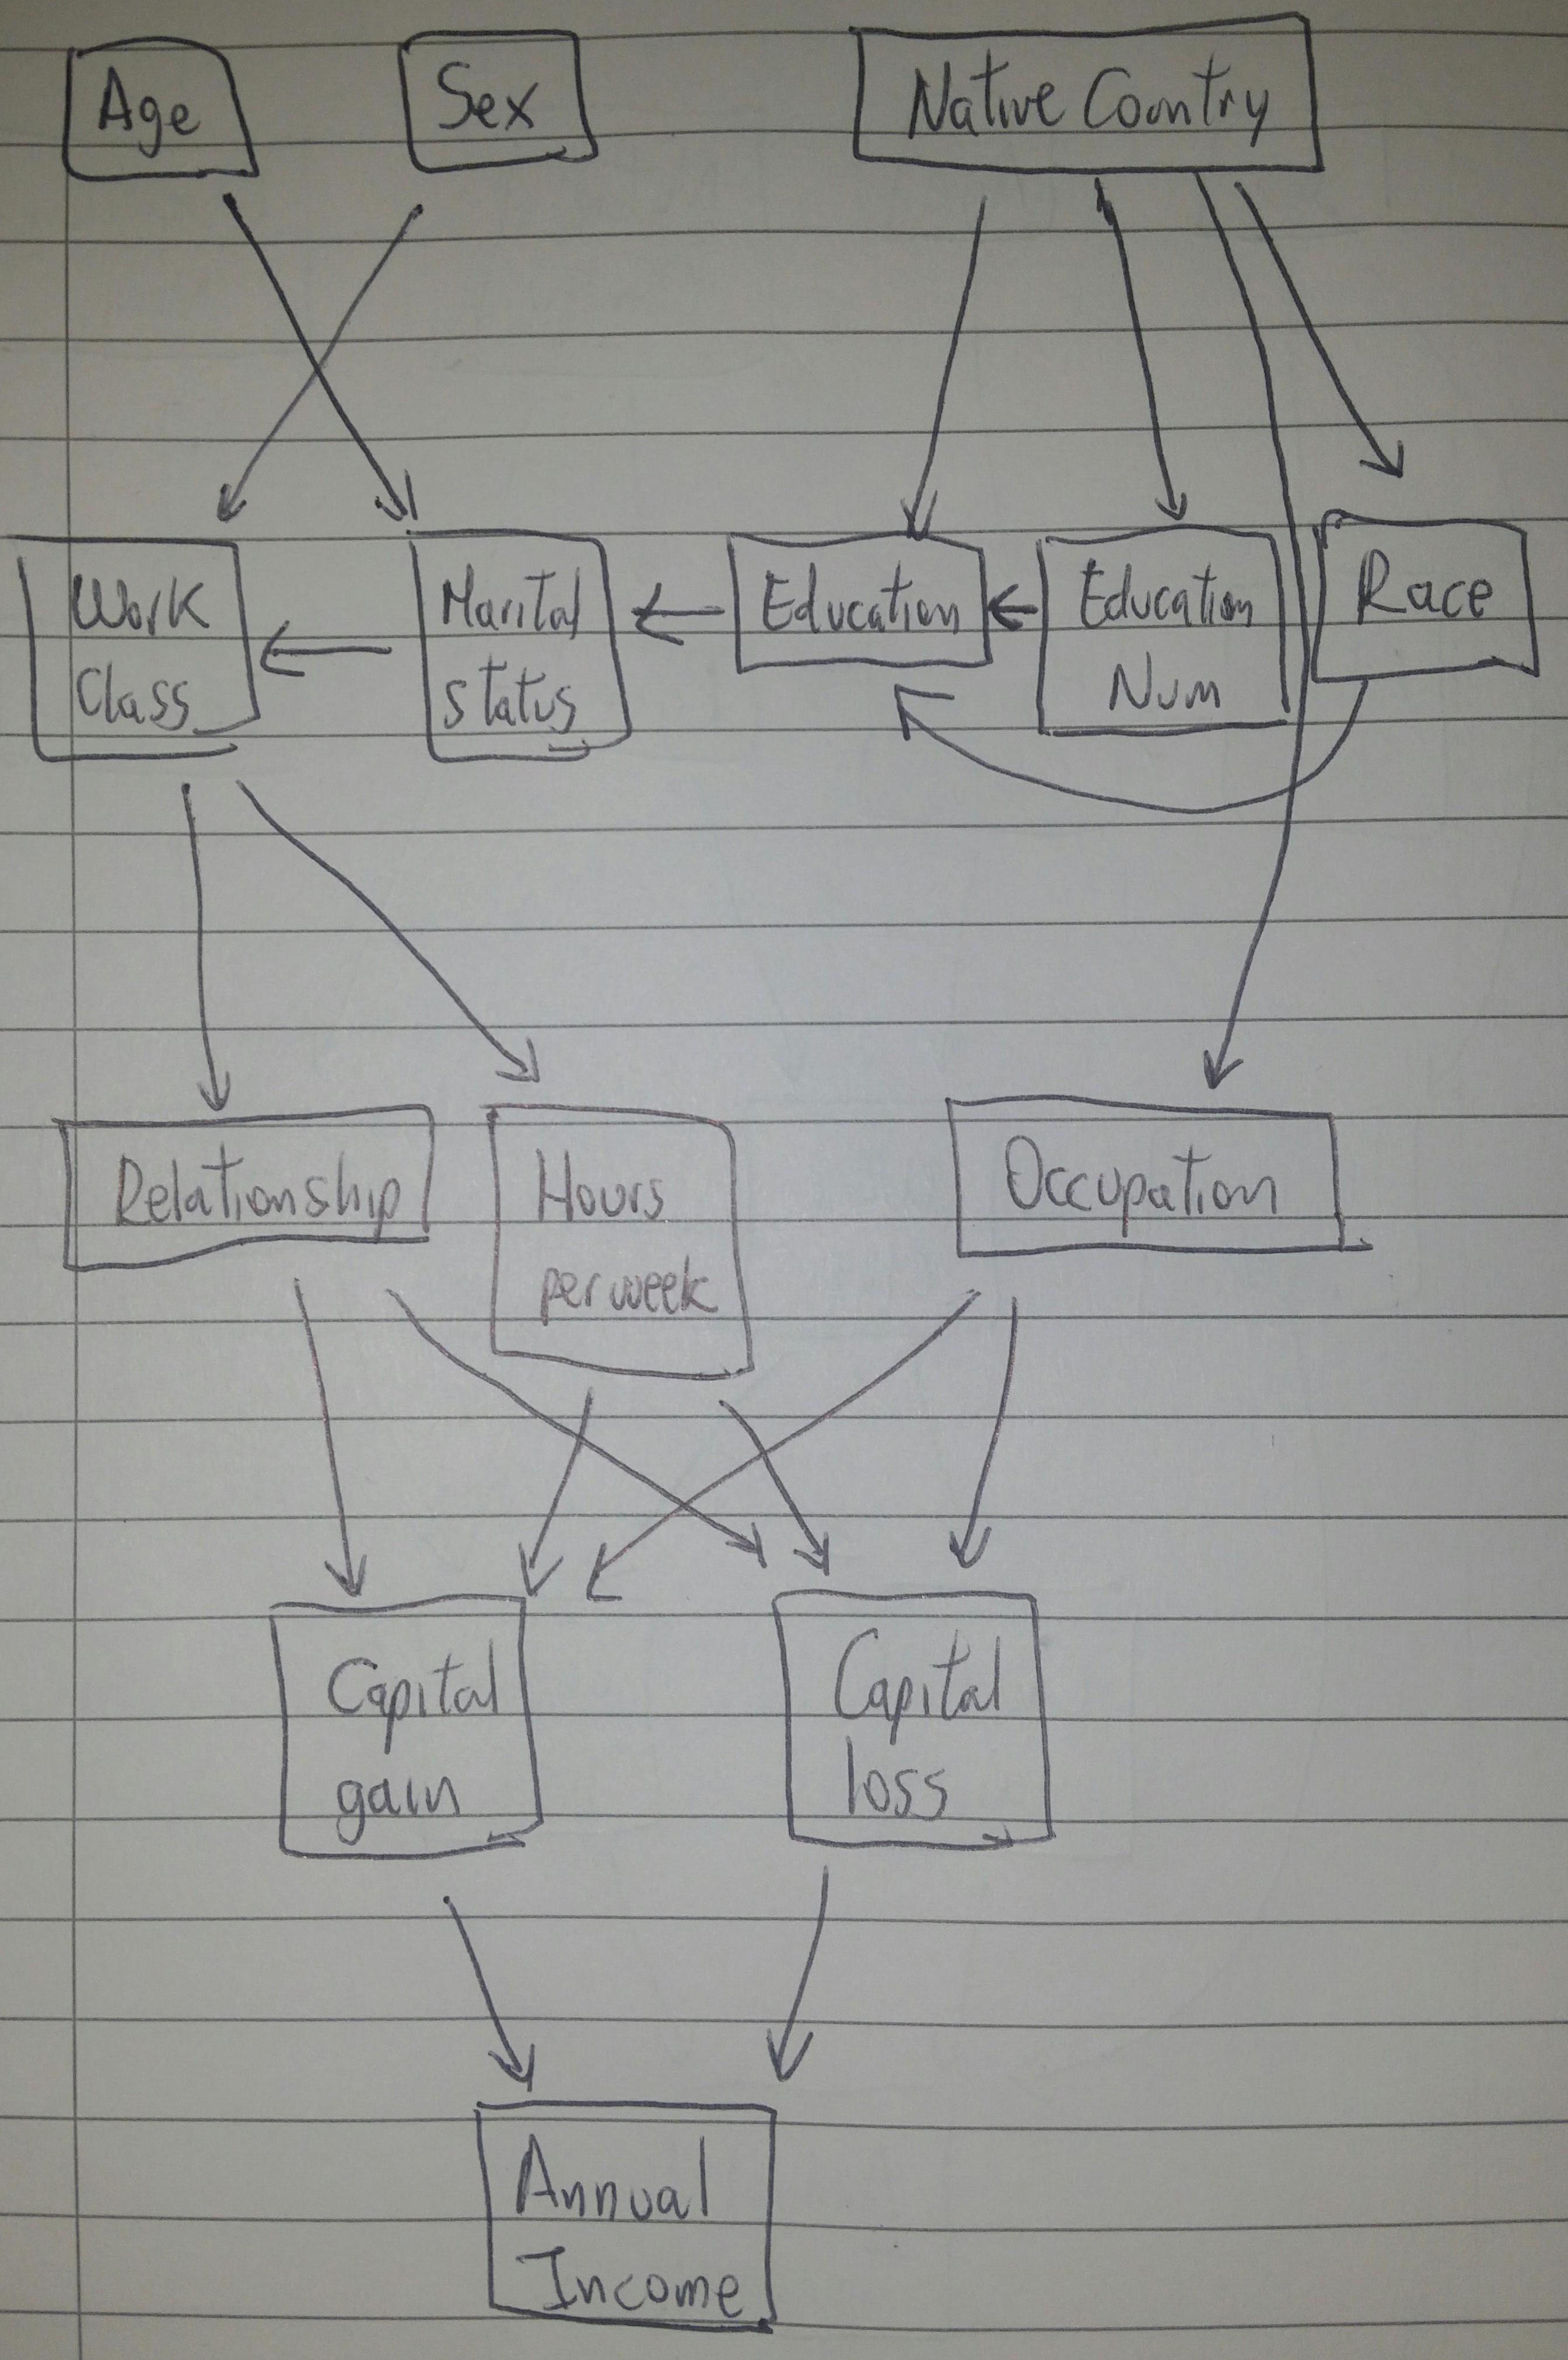 Age
Sex
Native Country
Work
Class
Marital
status
Education
Education
Num
Race
Relationship
Hours
per week
Occupation
Capital
gain
Capital
loss
Annual
Income